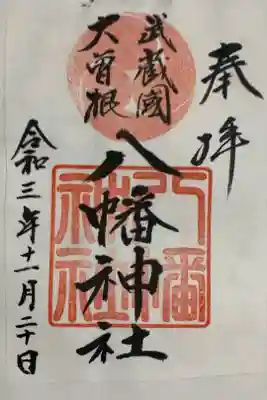 奉拝
武蔵國
大曽根
八幡神社
八幡
神社
令和三年十一月二十日